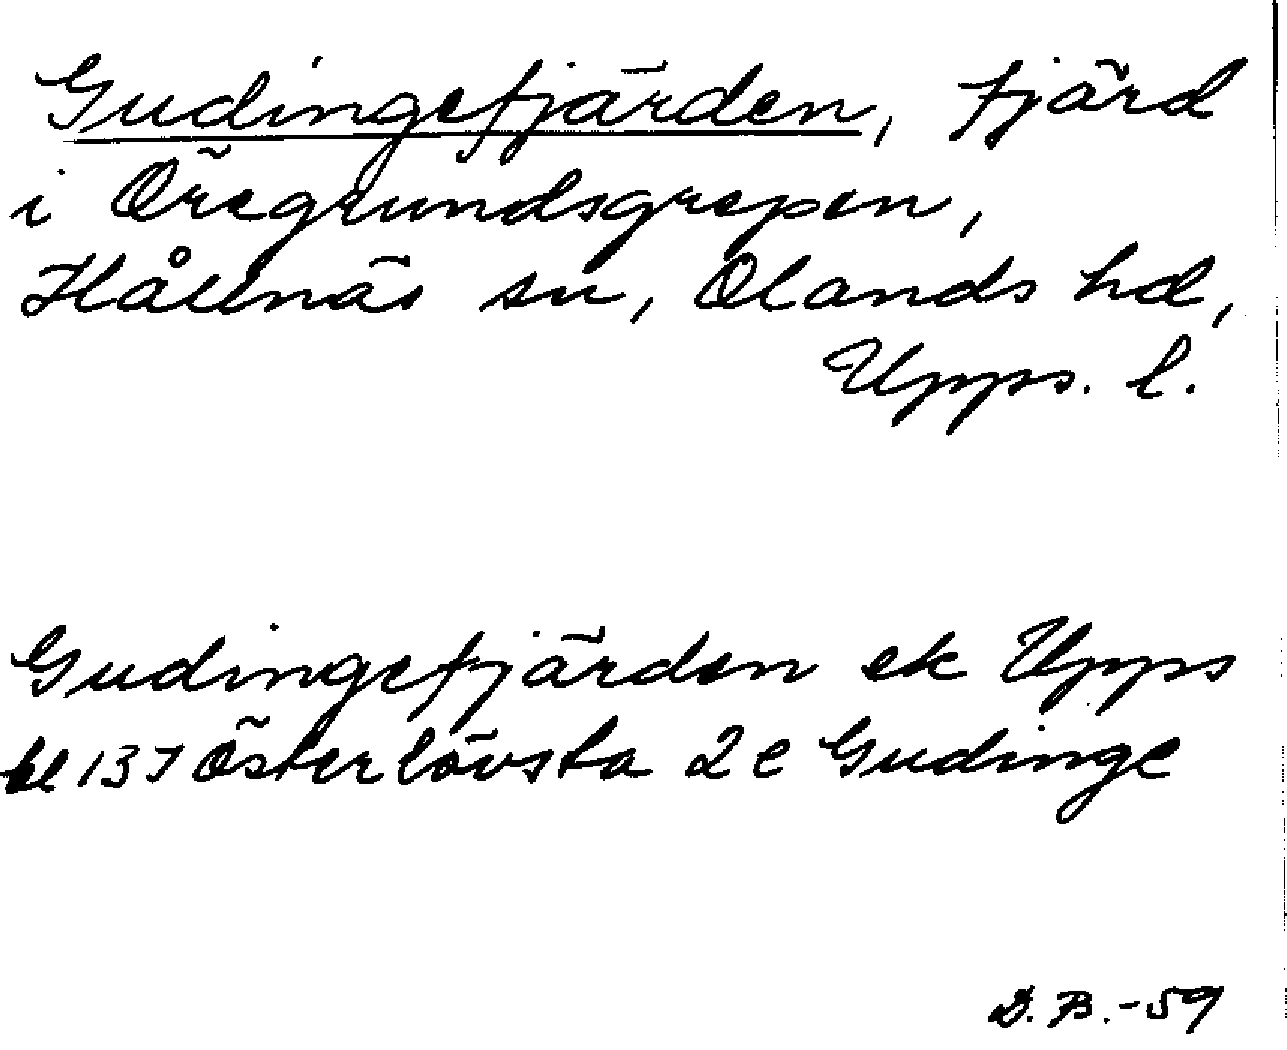 Gudingefjärden, fjärd
i Öregrundsgrepen,
Hållnäs sn, Olands hd,
Upps. l.
Gudingefjärden ek Upps
bl 137 Österlövsta 2e Gudinge
B. -59